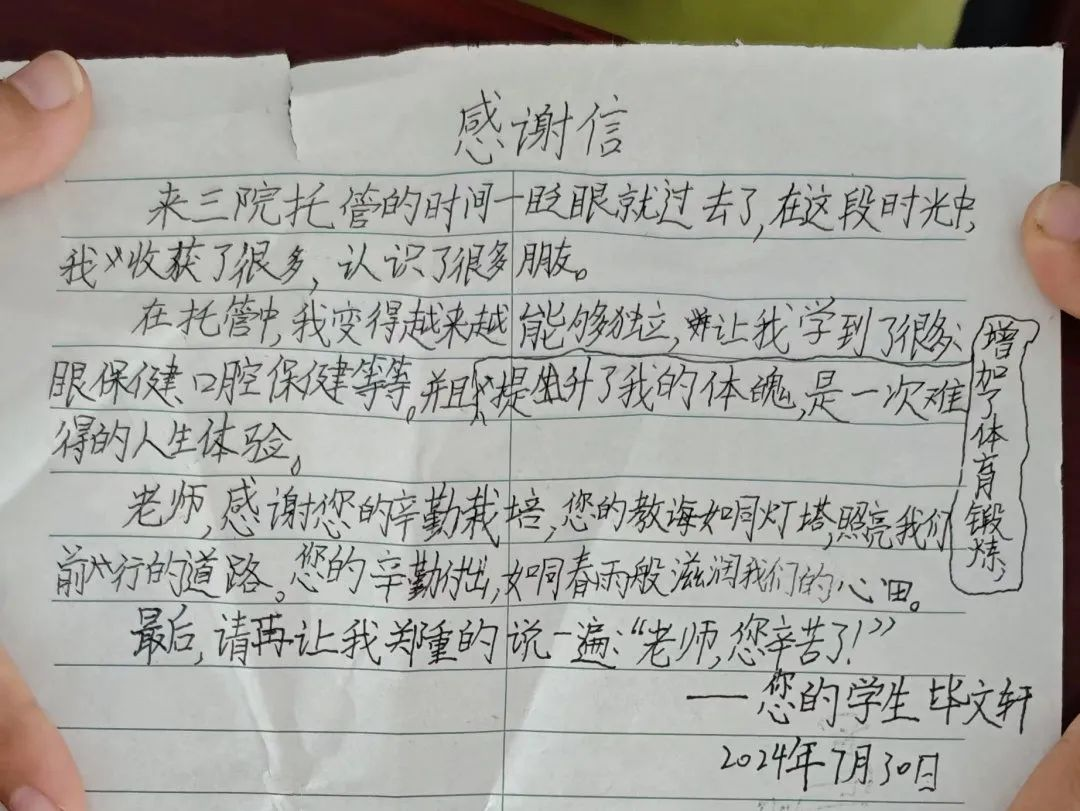 感谢信
来三院托管的时间一眨眼就过去了,在这段时光中,
我收获了很多,认识了很多朋友。
在托管中,我变得越来越能够独立,让我学到了很多:
眼保健、口腔保健等等。并且提升了我的体魄,是一次难
得的人生体验。
增加了体育锻炼,
老师,感谢您的辛勤栽培,您的教诲如同灯塔,照亮我们
前行的道路。您的辛勤付出,如同春雨般滋润我们的心田。
最后,请再让我郑重的说一遍:“老师,您辛苦了!”
——您的学生毕文轩
2024年7月30日